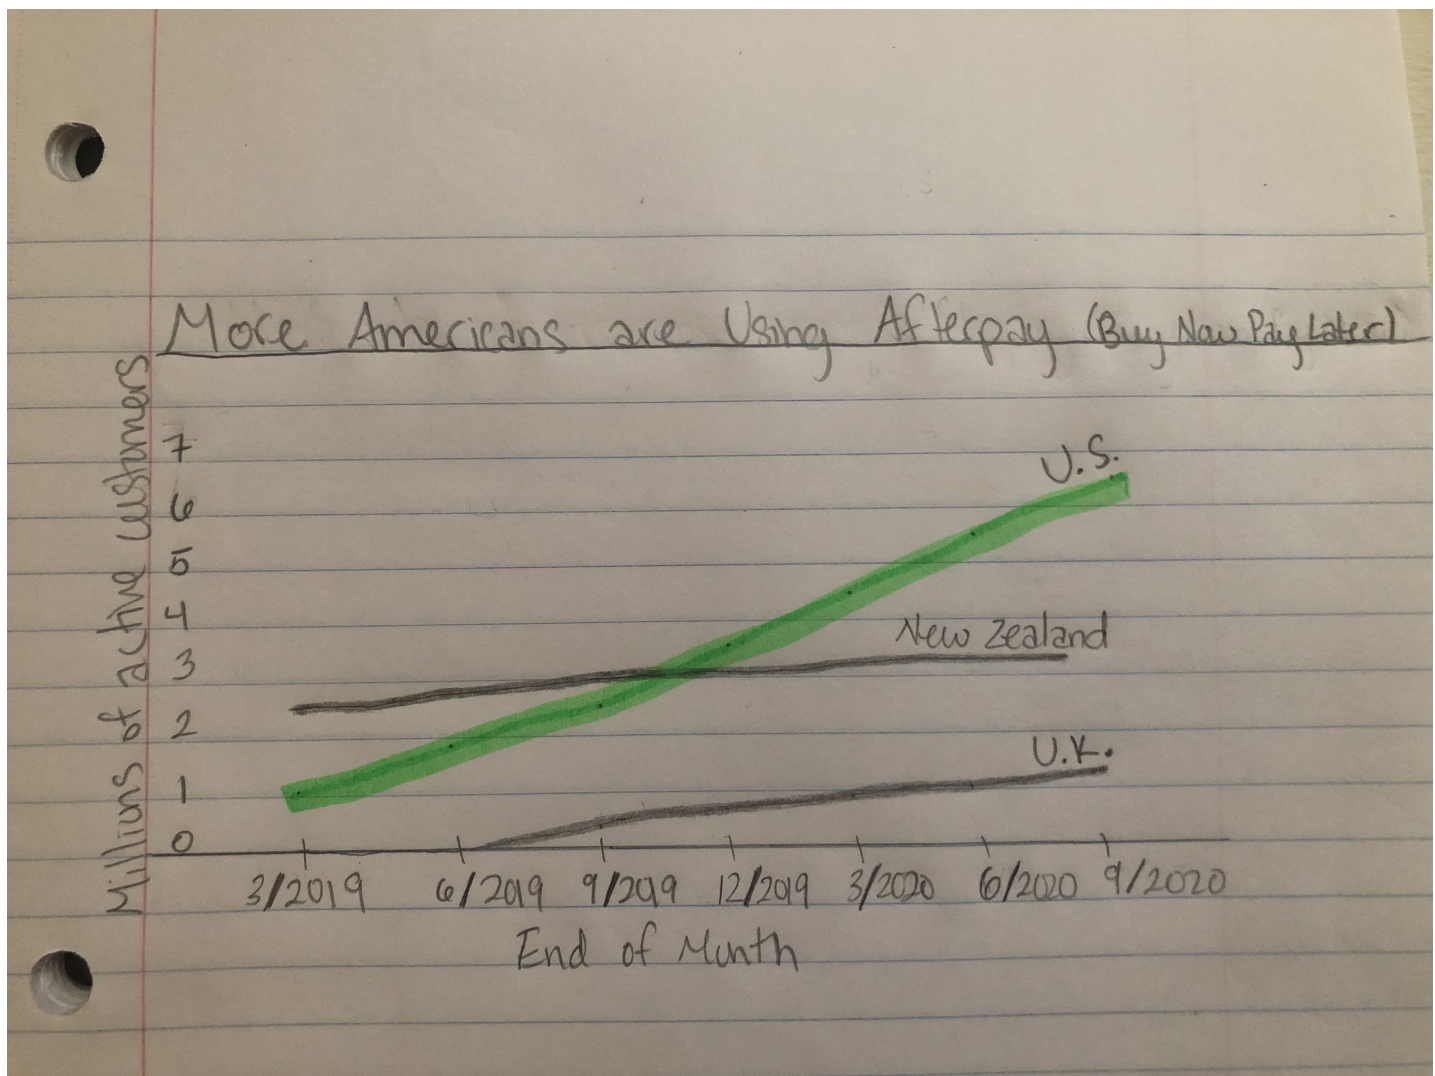 More Americans are Using Afterpay (Buy Now Pay Later)
Millions of active customers
7
6
5
4
3
2
1
0
U.S.
New Zealand
U.K.
3/2019 6/2019 9/2019 12/2019 3/2020 6/2020 9/2020
End of Month